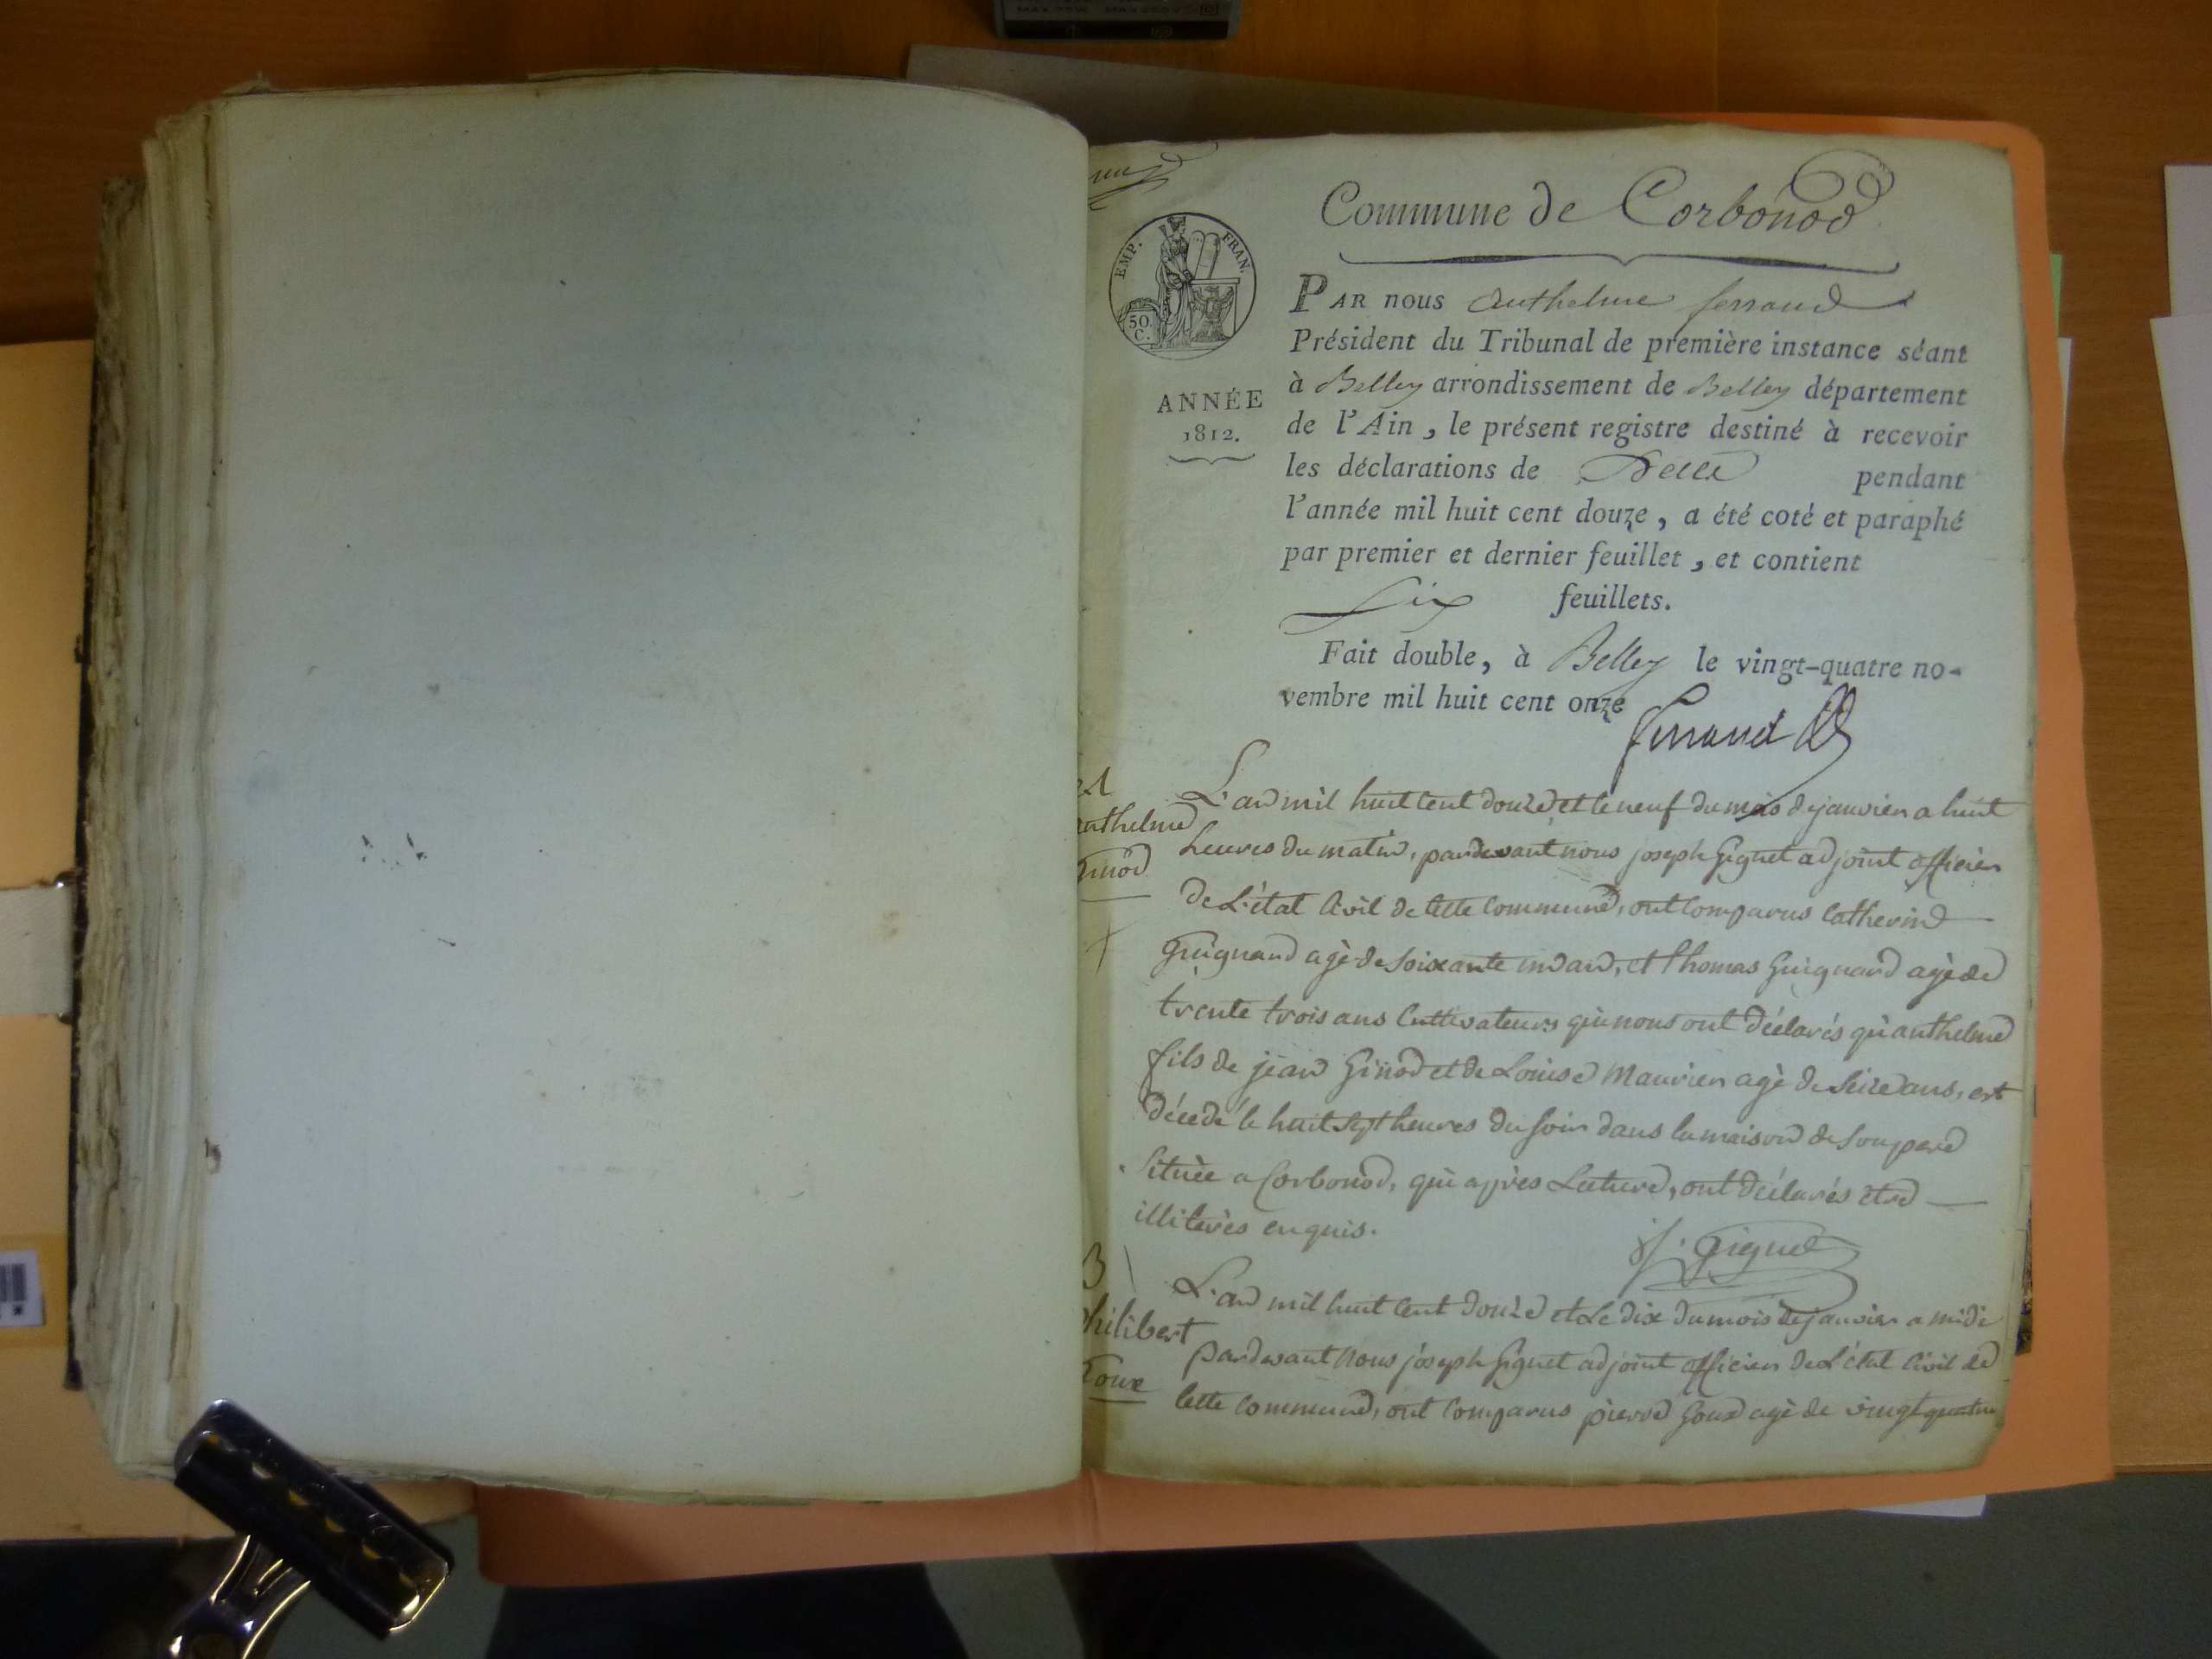 Commune de Corbonod
EMP. FRAN.
50.
C.
ANNÉE
1812.
PAR nous Anthelme ferrand
Président du Tribunal de première instance séant
à Belley arrondissement de Belley département
de l'Ain, le présent registre destiné à recevoir
les déclarations de Décès pendant
l'année mil huit cent douze, a été coté et paraphé
par premier et dernier feuillet, et contient
Six feuillets.
Fait double, à Belley le vingt-quatre no-
vembre mil huit cent onze
ferrand
anthelme
ginod
L'an mil huit cent douze, et le neuf du mois de janvier a huit
heures du matin, pardevant nous joseph Gignet adjoint officier
de L'état Civil de Cette Commune, ont Comparus Catherine
Guignard agé de soixante un an, et thomas Guignard agé de
trente trois ans Cultivateurs qui nous ont déclarés qu'anthelme
fils de jean Ginod et de Louise Maurier agé de seize ans, est
décedé le huit sept heures du soir dans la maison de son pere
Située a Corbonod, qui après Lecture, ont déclarés être
illiterés enquis.
j. Gignet
3
philibert
Goux
L'an mil huit cent douze et Le dix du mois de janvier a midi
pardevant nous joseph Gignet adjoint officier de L'état Civil de
Cette Commune, ont Comparus pierre Goux agé de vingt quatre